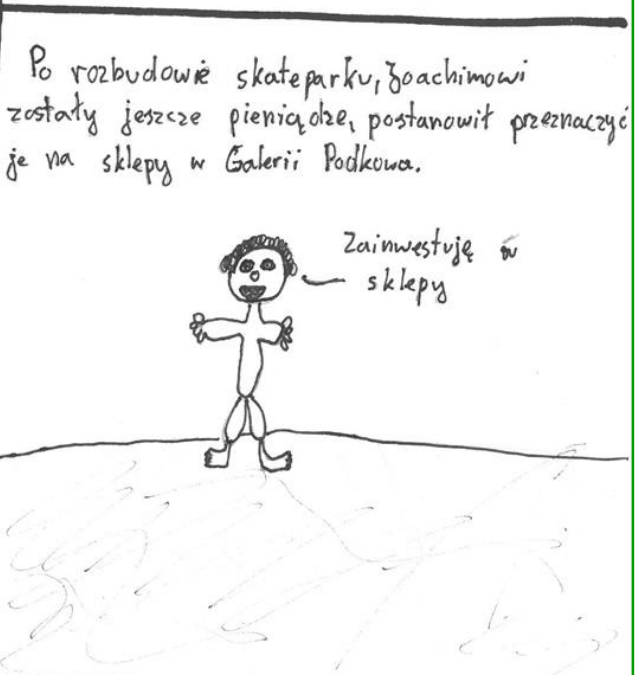 Po rozbudowie skateparku, Joachimowi
zostały jeszcze pieniądze, postanowił przeznaczyć
je na sklepy w Galerii Podkowa.
Zainwestuję w
sklepy